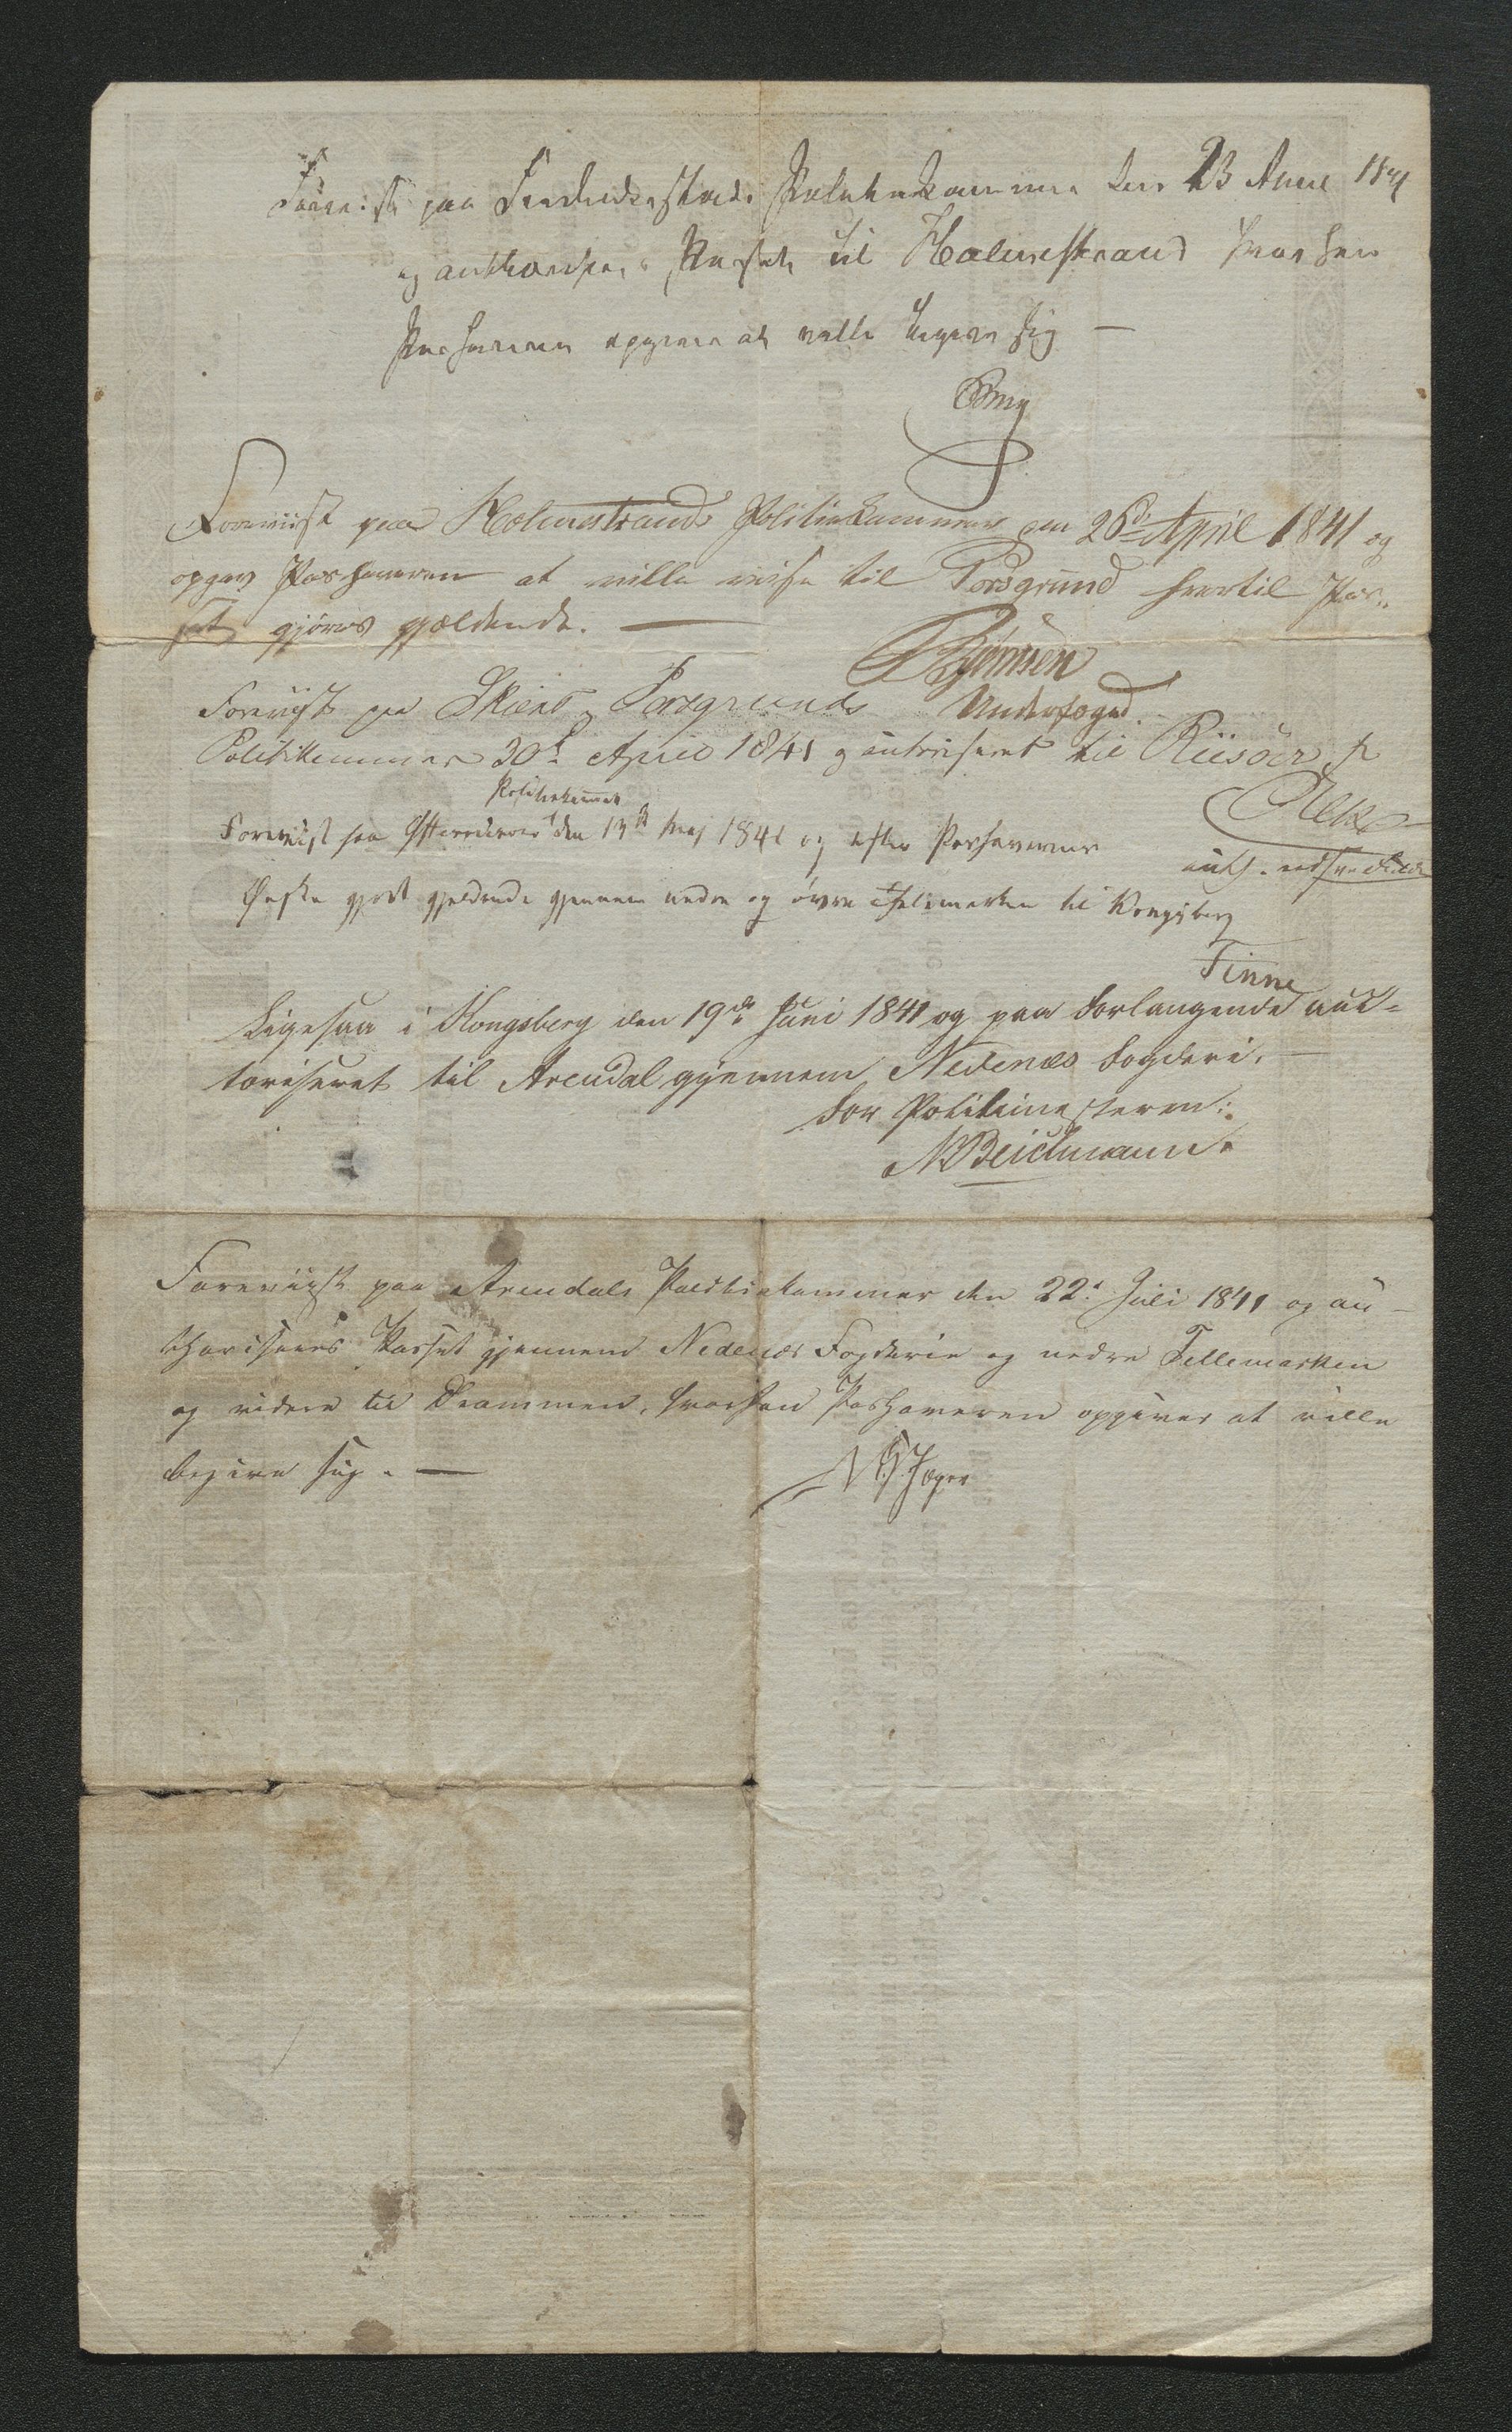 Foreviist paa Frederiksstads Politiekammer den 23 April 1841
og authoriseres Passet til Holmestrand hvorhen
Pashaveren opgiver at ville begive sig —
Foreviist paa Holmestrands Politiekammer den 26d April 1841 og
opgav Pashaveren at ville reise til Porsgrund hvortil Pas„
set gjøres gjældende. —
Underfoged.
Foreviist paa Skiens og Porsgrunds
Politikammer 30d April 1841 og autoriseret til Riisöer
Politiekammer
Foreviist paa den 13de Maj 1841 og efter Pashaverens
Ønske gjort gjeldende gjennem nedre og övre Thelemarken til Kongsberg
Finne
Ligesaa i Kongsberg den 19de Juni 1841 og paa Forlangende aut=
toriseret til Arendal gjennem Nedenæs Fogderi. —
For Politimesteren:
N Deichmann.
Foreviist paa Arendals Politiekammer den 22d Juli 1841 og au-
thoriseres Passet gjennem Nedenæs Fogderie og nedre Tellemarken
og videre til Drammen, hvorhen Pashaveren opgiver at ville
begive sig. —